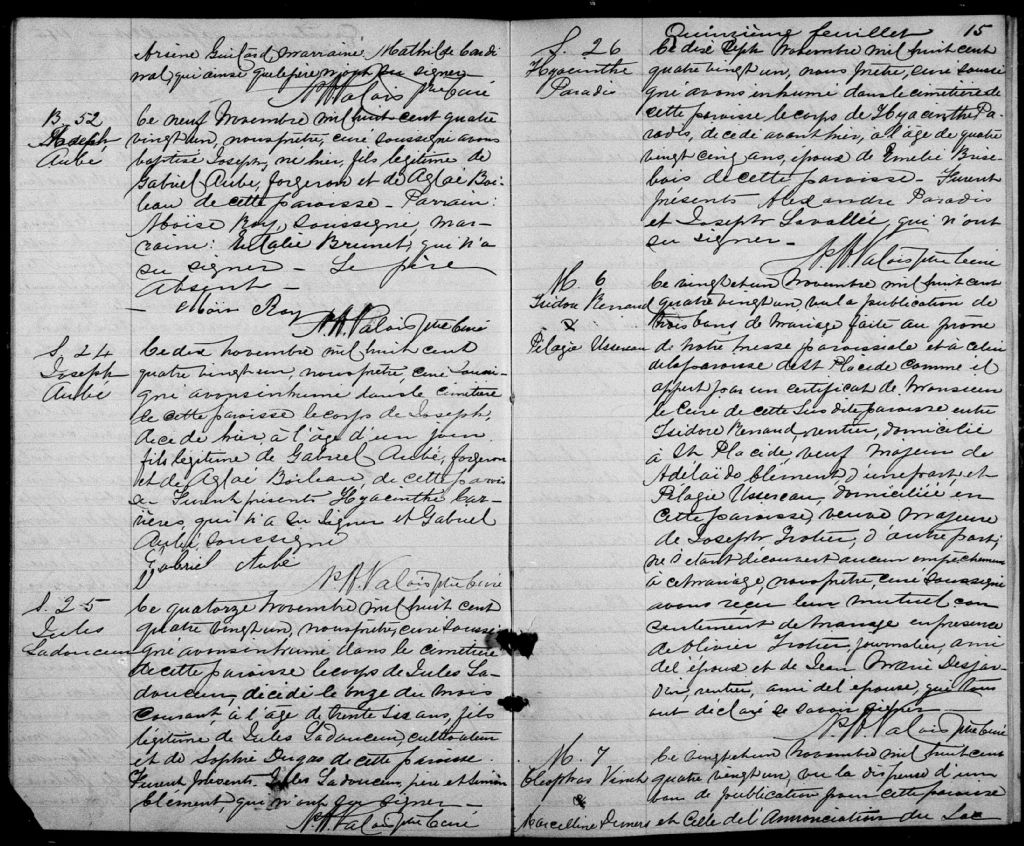 Arsène Guilard, marraine, Mathilde Cardi
nal, qui ainsi que le père n'ont su signer
N. A. Valois Ptre Curé
B. 52
Joseph
Aubé
Ce neuf Novembre mil huit cent quatre
vingt un, nous prêtre, curé soussigné avons
baptisé Joseph, né hier, fils légitime de
Gabriel Aubé, forgeron et de Aglaé Boi
leau de cette paroisse - Parrain:
Moïse Roy, soussigné, mar-
raine: Eutalie Brunet, qui n'a
su signer - Le père
Absent -
Moïs Roy
N. A. Valois Ptre Curé
S. 24
Joseph
Aubé
Ce dix novembre mil huit cent
quatre vingt un, nous prêtre, curé soussi-
gné avons inhumé dans le cimetière
de cette paroisse le corps de Joseph,
décédé hier, à l'âge d'un jour
fils légitime de Gabriel Aubé, forgeron
et de Aglaé Boileau, de cette parois
se Furent présents Hyacinthe Car-
rières, qui n'a su signer et Gabriel
Aubé, soussigné
Gabriel Aubé
N. A. Valois ptre Curé
S. 25
Jules
Ladouceur
Ce quatorze Novembre mil huit cent
quatre vingt un, nous prêtre, curé soussi
gné avons inhumé dans le cimetière
de cette paroisse le corps de Jules La-
douceur, décédé le onze du mois
courant à l'âge de trente six ans, fils
légitime de Jules Ladouceur, cultivateur
et de Sophie Dugas de cette paroisse.
Furent présents Jules Ladouceur, père et Simon
Clément, qui n'ont su signer -
N. A. Valois ptre Curé
Quinzième feuillet 15
S. 26
Hyacinthe
Paradis
Ce dix sept Novembre mil huit cent
quatre vingt un, nous prêtre, curé soussi
gné avons inhumé dans le cimetière de
cette paroisse, le corps de Hyacinthe Pa-
radis, décédé avant hier, à l'âge de quatre
vingt cinq ans, époux de Emelie Brise
bois de cette paroisse - Furent
présents Alexandre Paradis
et Joseph Lavallée, qui n'ont
su signer -
N. A. Valois ptre Curé
M. 6
Isidore Renaud
&
Pélagie Ussereau
Ce vingt et un Novembre mil huit cent
quatre vingt un, vu la publication de
trois bans de mariage faite au prône
de notre messe paroissiale et à celui
de la paroisse de St Placide comme il
appert par un certificat de Monsieur
le Curé de cette susdite paroisse entre
Isidore Renaud, rentier, domicilié
à St Placide, veuf majeur de
Adélaïde Clément, d'une part, et
Pélagie Ussereau, domiciliée en
cette paroisse, veuve majeure
de Joseph Trotier, d'autre part,
ne s'étant découvert aucun empêchement
à ce mariage, nous prêtre, curé soussigné
avons reçu leur mutuel con
sentement de mariage en présence
de Olivier Trotier, journalier, ami
de l'époux et de Jean Marie Desjar
din, rentier, ami de l'épouse, qui tous
ont déclaré ne savoir signer -
N. A. Valois ptre Curé
M. 7
Cléophas Vinet
&
Marcelline Demers
Ce vingt et un novembre mil huit cent
quatre vingt un, vu la dispense d'un
ban de publication pour cette paroisse
et Celle de l'Annonciation du Lac